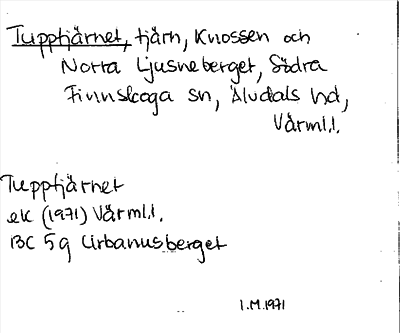 Tupptjärnet, tjärn, Knossen och
Norra Ljusneberget, Södra
Finnskoga sn, Älvdals hd,
Värml.l.
Tupptjärnet
ek (1971) Värml.l.
BC 5g Urbanusberget
I.M.1971